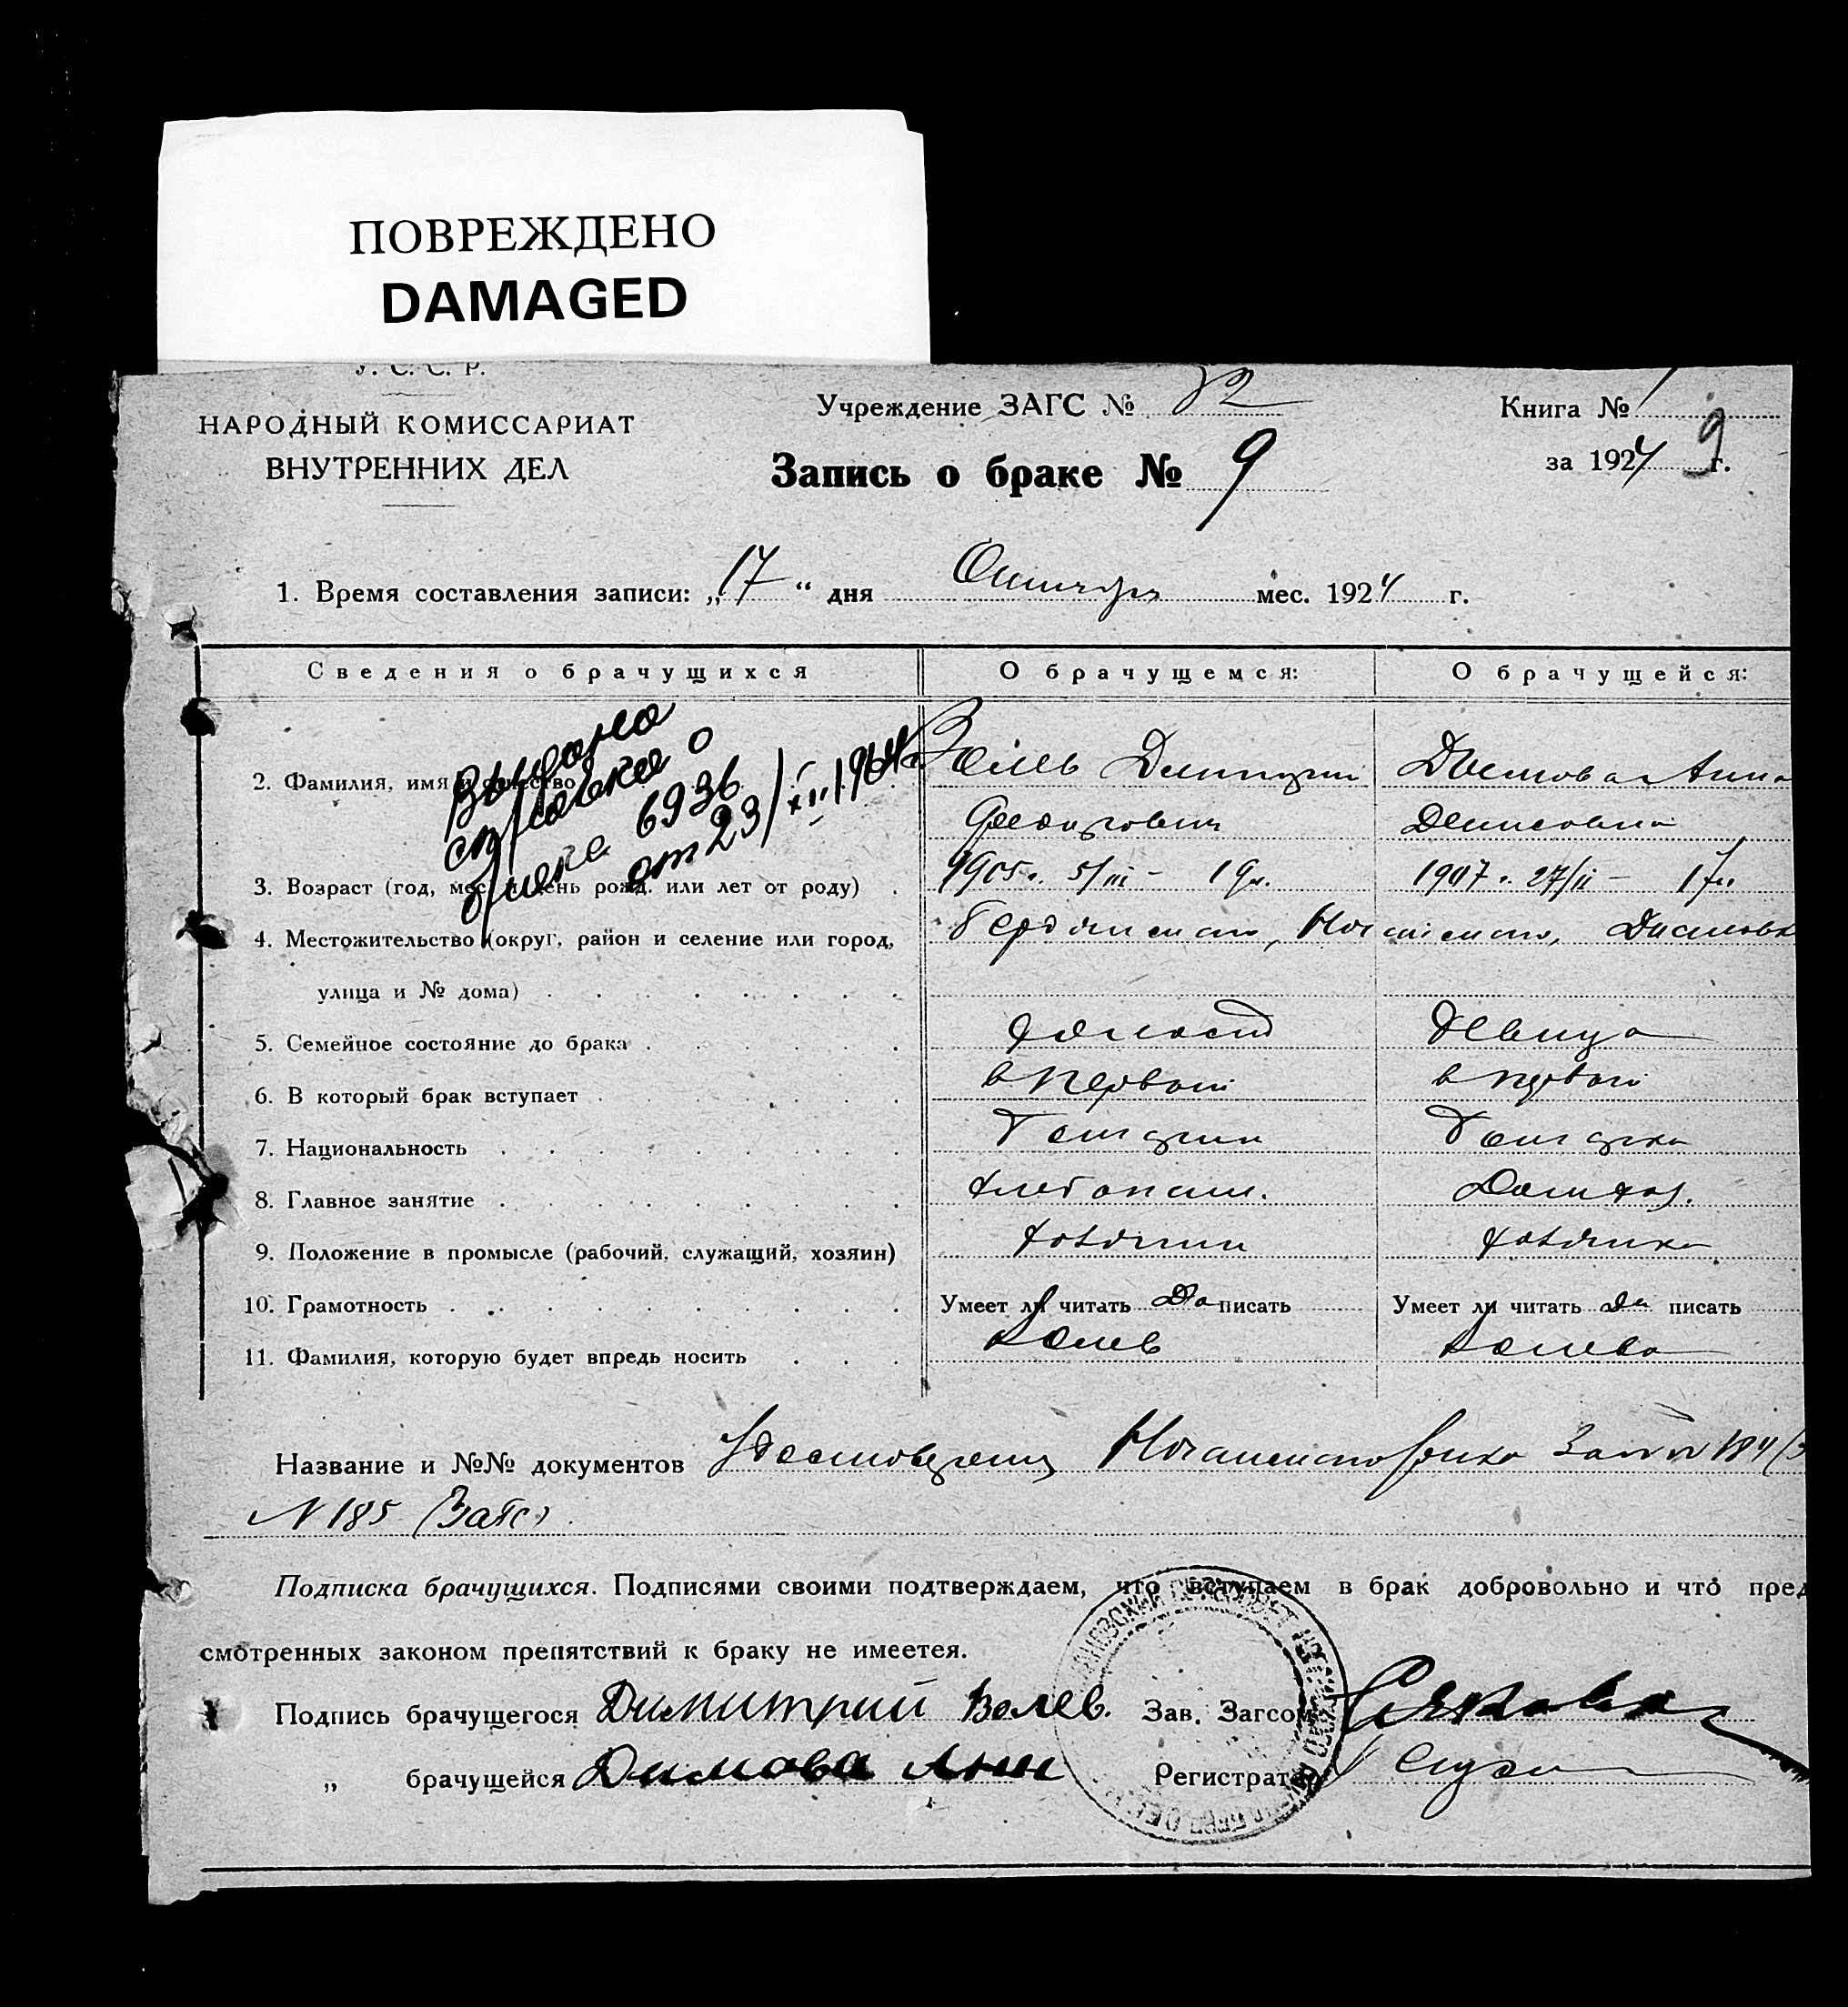 ПОВРЕЖДЕНО
DAMAGED
У. С. С. Р.
НАРОДНЫЙ КОМИССАРИАТ
ВНУТРЕННИХ ДЕЛ
Учреждение ЗАГС №
Книга № 1
Запись о браке № 9
за 1924 г.
9
1. Время составления записи: „17“ дня Октября мес. 1924 г.
Сведения о брачущихся
О брачущемся:
О брачущейся:
2. Фамилия, имя и отчество
Димитрий
Анна
Федорович
Денисовна
Выдана
справка о
браке 6936
от 23/XII 1964
3. Возраст (год, мес. и день рожд. или лет от роду)
1905 г. 5/III – 19 л.
1907 г. 27/II – 17 л.
4. Местожительство (округ, район и селение или город,
улица и № дома)
5. Семейное состояние до брака
холост
девица
6. В который брак вступает
в первый
в первый
7. Национальность
Болгарин
Болгарка
8. Главное занятие
хлебопаш.
Домхоз.
9. Положение в промысле (рабочий, служащий, хозяин)
хозяин
хозяйка
10. Грамотность
Умеет ли читать Да писать
Умеет ли читать Да писать
11. Фамилия, которую будет впредь носить
Волев
Волева
Название и №№ документов Удостоверения
N 185 (Загс)
Подписка брачущихся. Подписями своими подтверждаем, что вступаем в брак добровольно и что пред
смотренных законом препятствий к браку не имеетея.
Подпись брачущегося Димитрий Волев. Зав. Загсом
„ брачущейся Димова Анн Регистратор